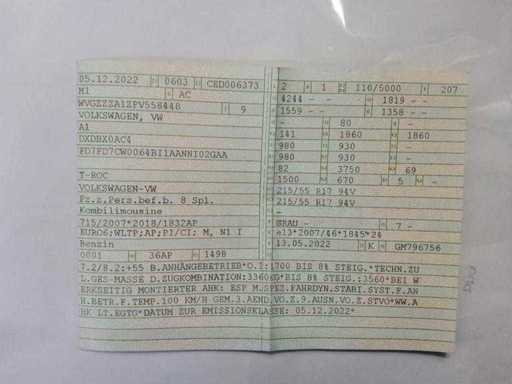 05.12.2022 0603 CHD006373
M1 AC
9
VOLKSWAGEN, VW
A1
DXDBX0AC4
T-ROC
VOLKSWAGEN-VW
Fz.z.Pers.bef.b. 8 Spl.
Kombilimousine
715/2007*2018/1832AP
EURO6;WLTP;AP;PI/CI; M, N1 I
Benzin
0001 36AP 1498
2 1 110/5000 207
4244 - - 1819 - -
1559 - - 1358 - -
- 80 -
141 1860 1860
980 930 -
980 930 -
82 3750 69
1500 670 5 -
215/55 R17 94V
215/55 R17 94V
-
-
GRAU - 7 -
e13*2007/46*1845*24
13.05.2022 K GM796756
7.2/8.2:+55 B.ANHÄNGEBETRIEB*O.1:1700 BIS 8% STEIG.*TECHN.ZU
L.GES-MASSE D.ZUGKOMBINATION:3360KG BIS 8% STEIG.:3560*BEI W
ERKSEITIG MONTIERTER AHK: ESP M.SPEZ.FAHRDYN.STABI.SYST.F.AN
H.BETR.F.TEMP.100 KM/H GEM.3.AEND.VO.Z.9.AUSN.VO.Z.STVO*WW.A
HK LT.EGTG*DATUM ZUR EMISSIONSKLASSE: 05.12.2022*